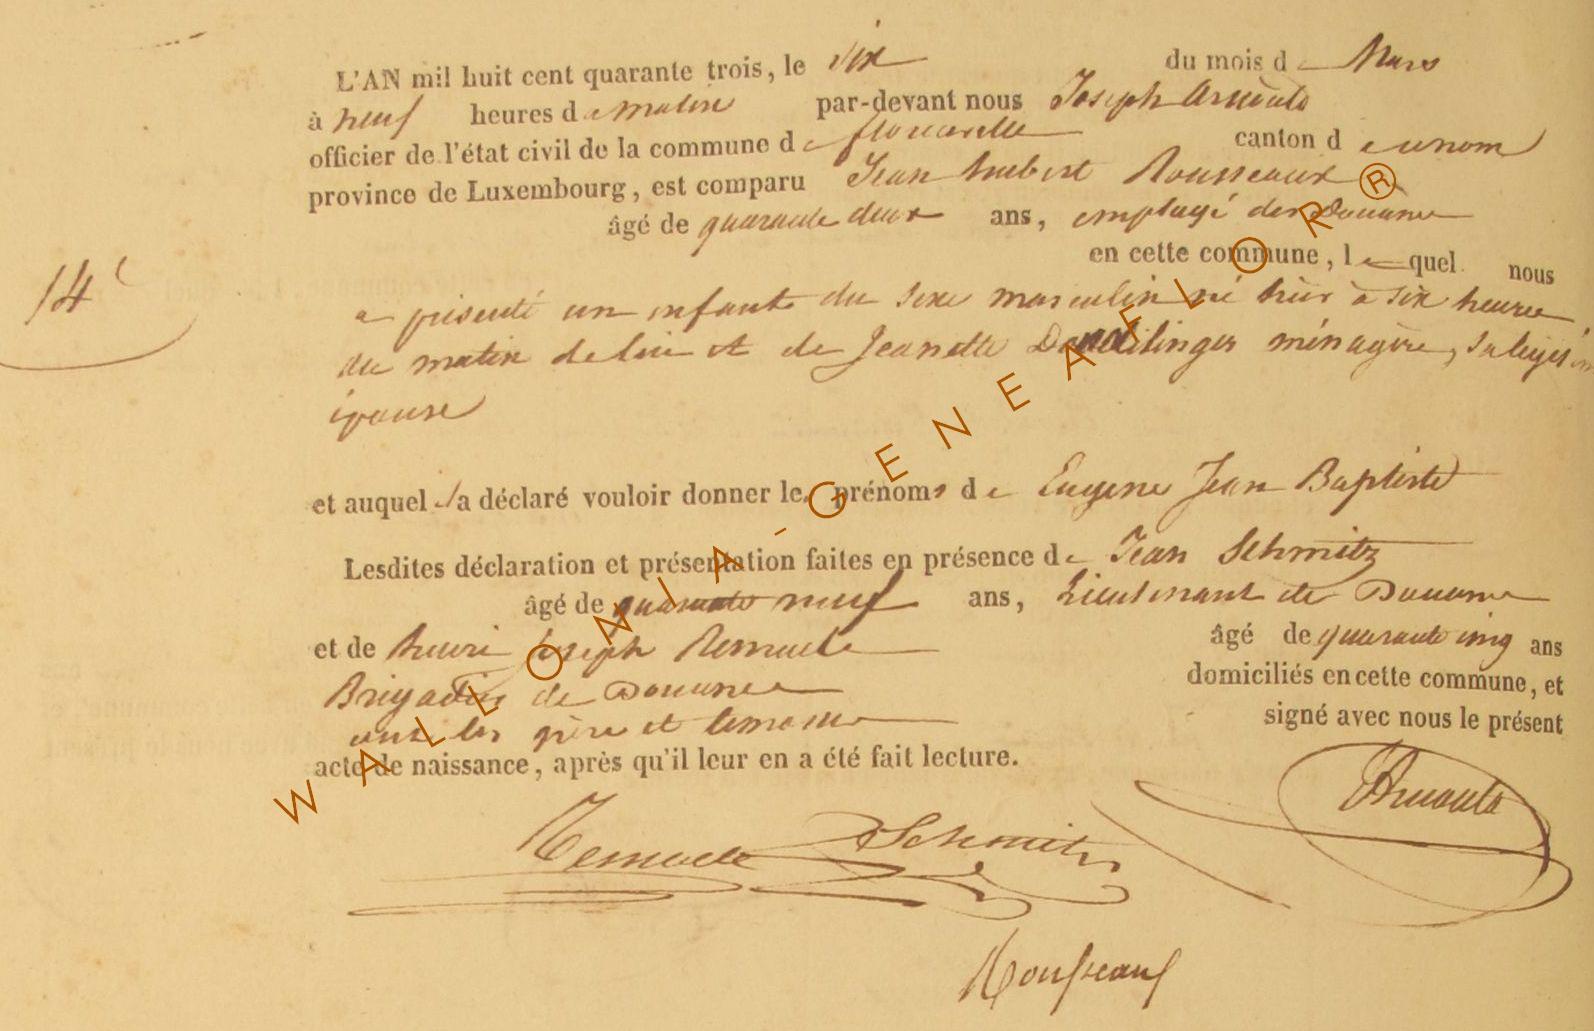 L'AN mil huit cent quarante trois, le six du mois de Mars
à neuf heures de matin par-devant nous Joseph Arnould
officier de l'état civil de la commune de canton de
province de Luxembourg, est comparu Jean hubert Rousseaux
âgé de quarante deux ans, employé des Douanes
en cette commune, lequel nous
14e
a présenté un enfant du sexe masculin né hier à six heures
du matin de lui et de Jeanette ménagère, sa
épouse
et auquel il a déclaré vouloir donner les prénoms de Eugene Jean Baptiste
Lesdites déclaration et présentation faites en présence de Jean Schmitz
âgé de quarante neuf ans, Lieutenant de Douane
et de henri Joseph Remacle âgé de quarante cinq ans
Brigadier de Douanes domiciliés en cette commune, et
ont les père et temoins signé avec nous le présent
acte de naissance, après qu'il leur en a été fait lecture.
Remacle Schmitz
Rousseaux
WALLONIA-GENEAFLOR®